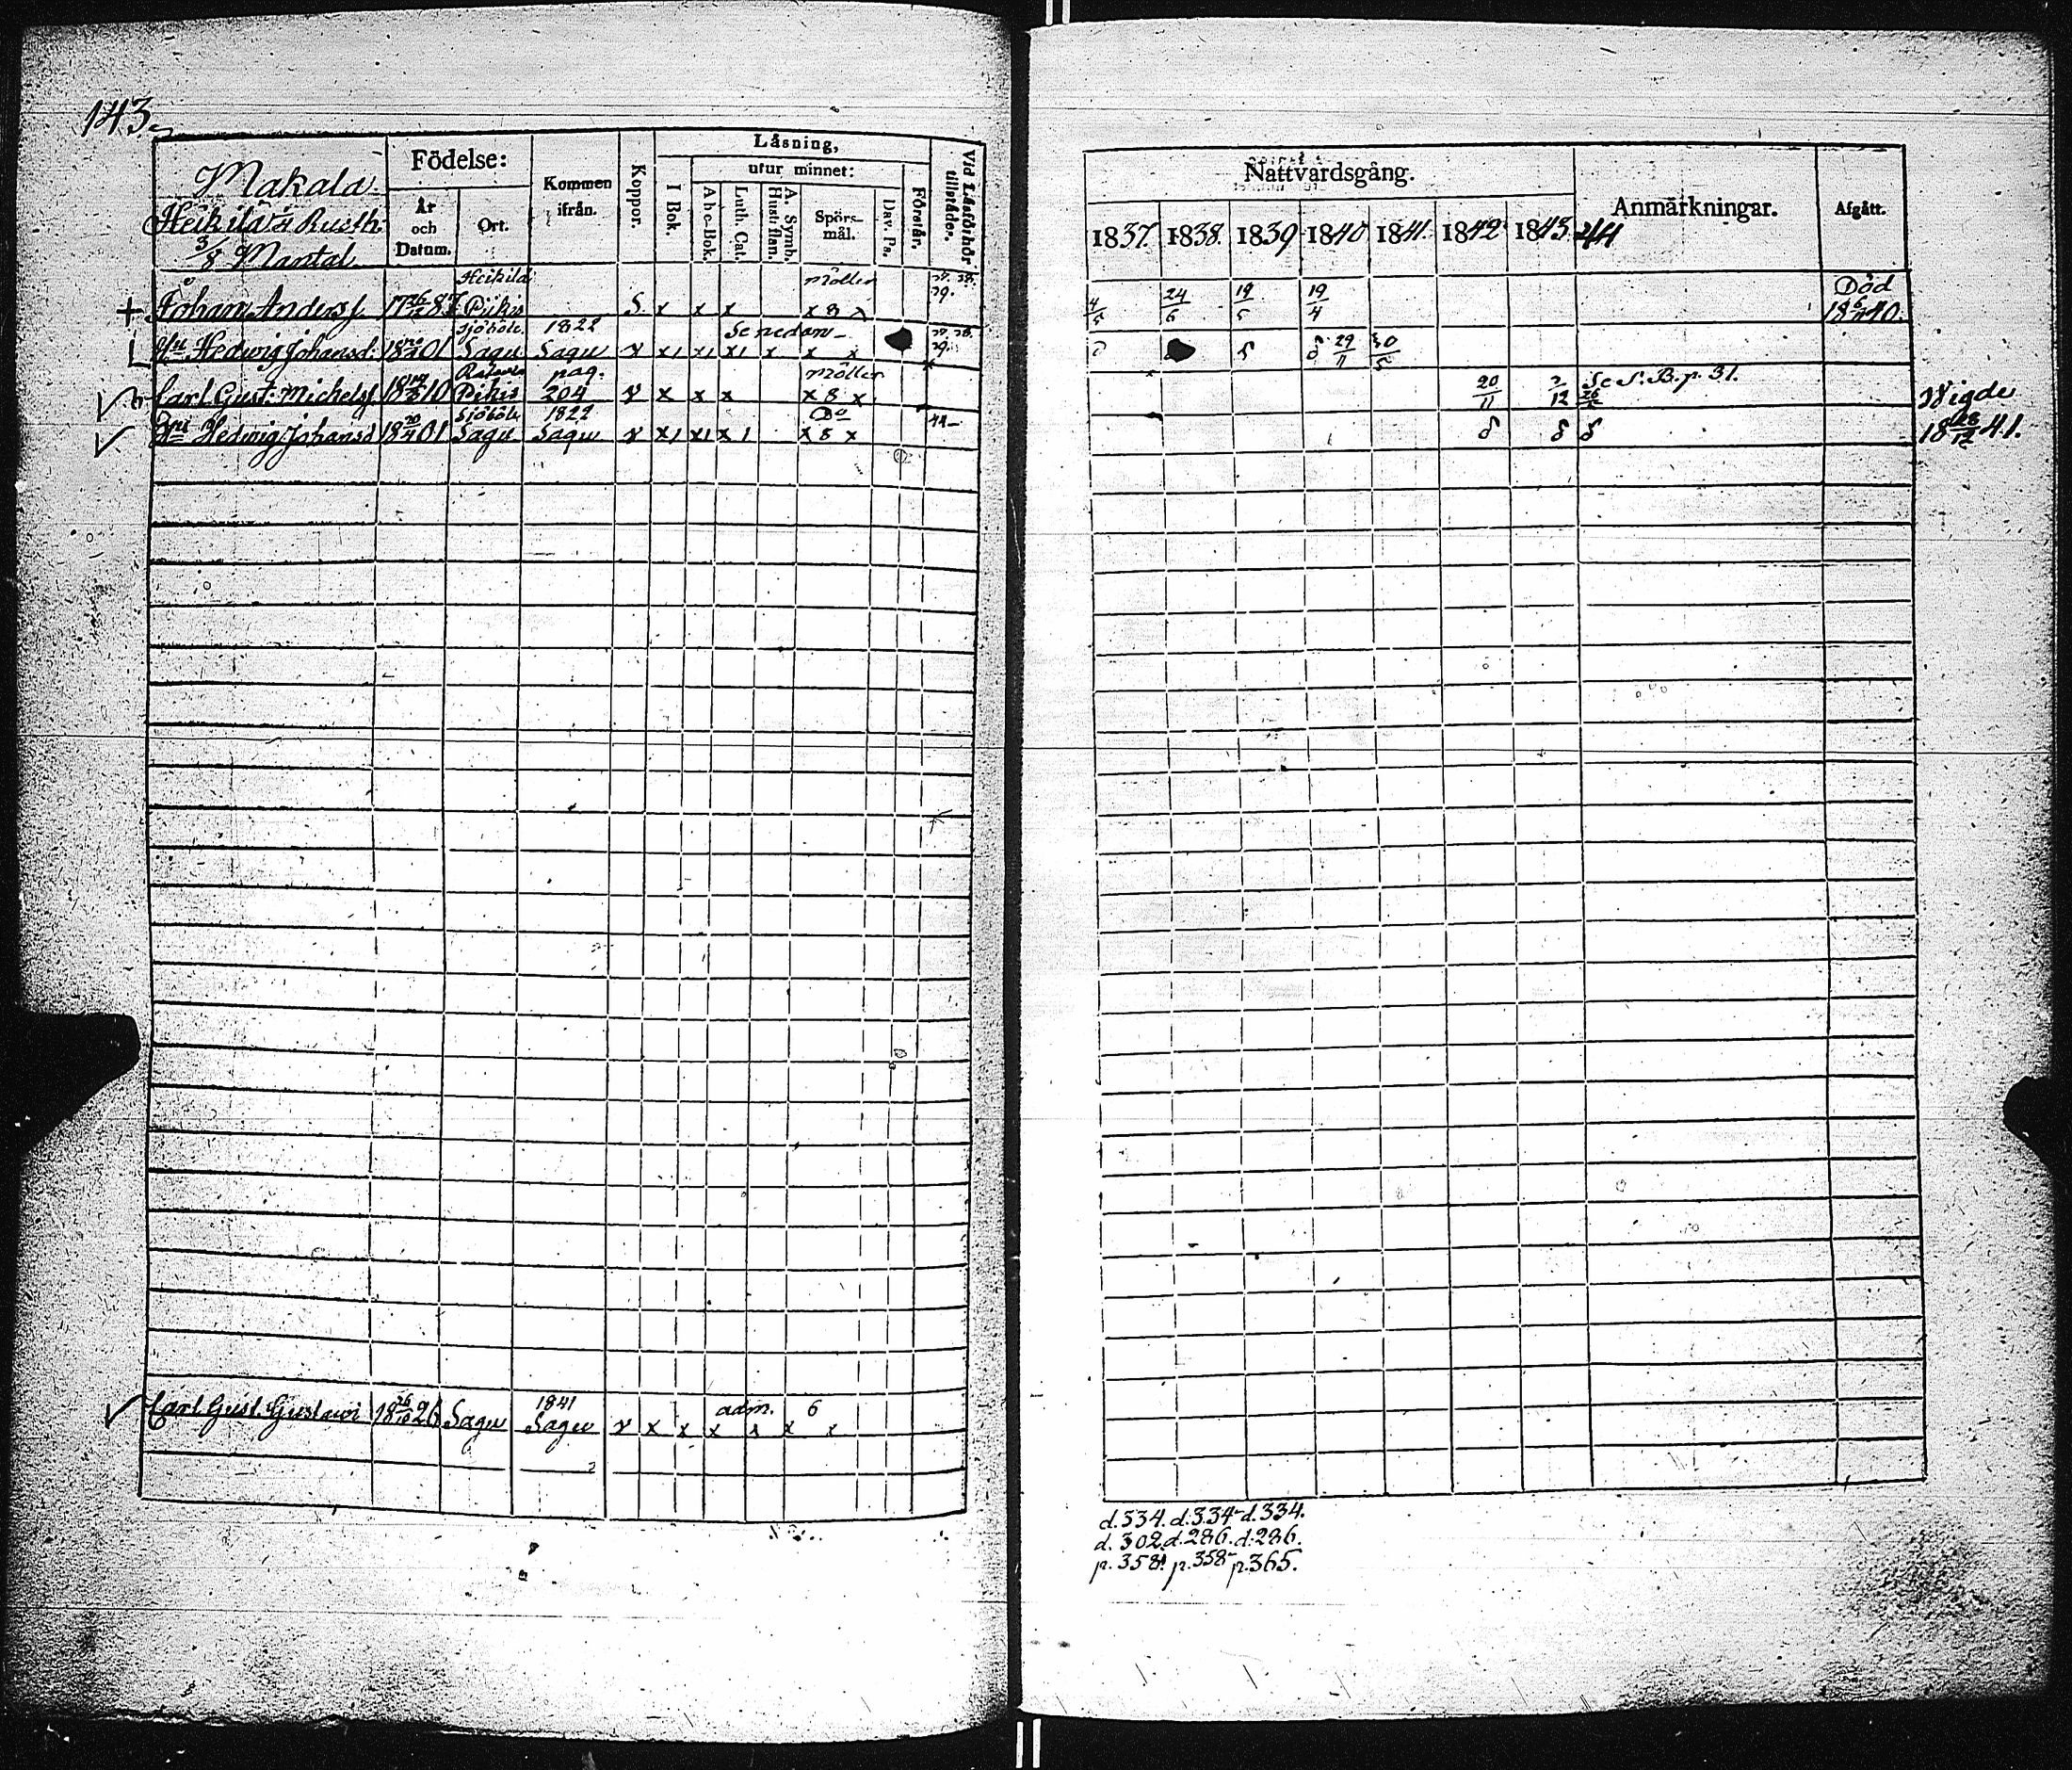 143.
Makala
Heikilä Rusth.
3/8 Mantal
Födelse:
År och Datum.
Ort.
Kommen ifrån.
Koppor.
Läsning,
I Bok.
utur minnet:
A b c-Bok.
Luth. Cat.
A. Symb. Hust-flan.
Spörsmål.
Dav. Ps.
Förstår.
Vid Läsförhör tillstädes.
Nattvardsgång.
1837. 1838. 1839 1840 1841. 1842 1843. 44
Anmärkningar.
Afgått.
+ Johan Anders. 17 87 Heikilä Pikis S. x x x möller x 8 x 4/5 24/6 19/5 19/4 Död 18 40.
Hu Hedwig Johansd. 18 20/4 01 Sjöböle Sagu 1822 Sagu v x x x x Se nedan x x 29/11 30/5
Carl Gust. Michelss 18 10 Pikis pag. 204 v x x x möller x 8 x 20/11 12 Se S.B. p. 31. Wigde
Hedwig Johansd 18 20/4 01 Sjöböle Sagu 1822 Sagu v x x x Do x 8 x 44 18 28/12 41.
Carl Gust. Gustavi 18 26/10 26 Sagu 1841 Sagu v x x x x x x adm. 6
d. 534. d. 334 d. 334.
d. 302 d. 286. d. 286.
p. 358. p. 358 p. 365.